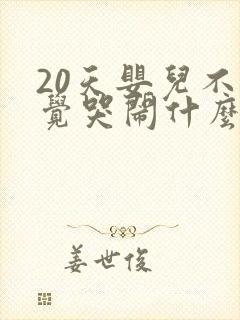 20天嬰兒不
覺哭鬧什麼
姜世俊